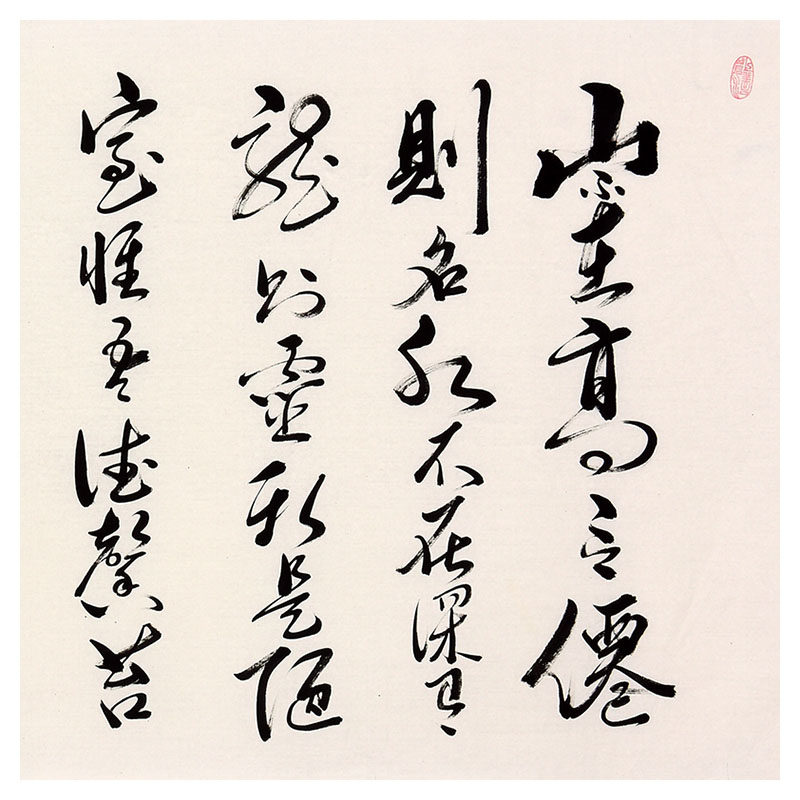 山不在高有僊
則名水不在深有
龍則靈斯是陋
室惟吾德馨苔